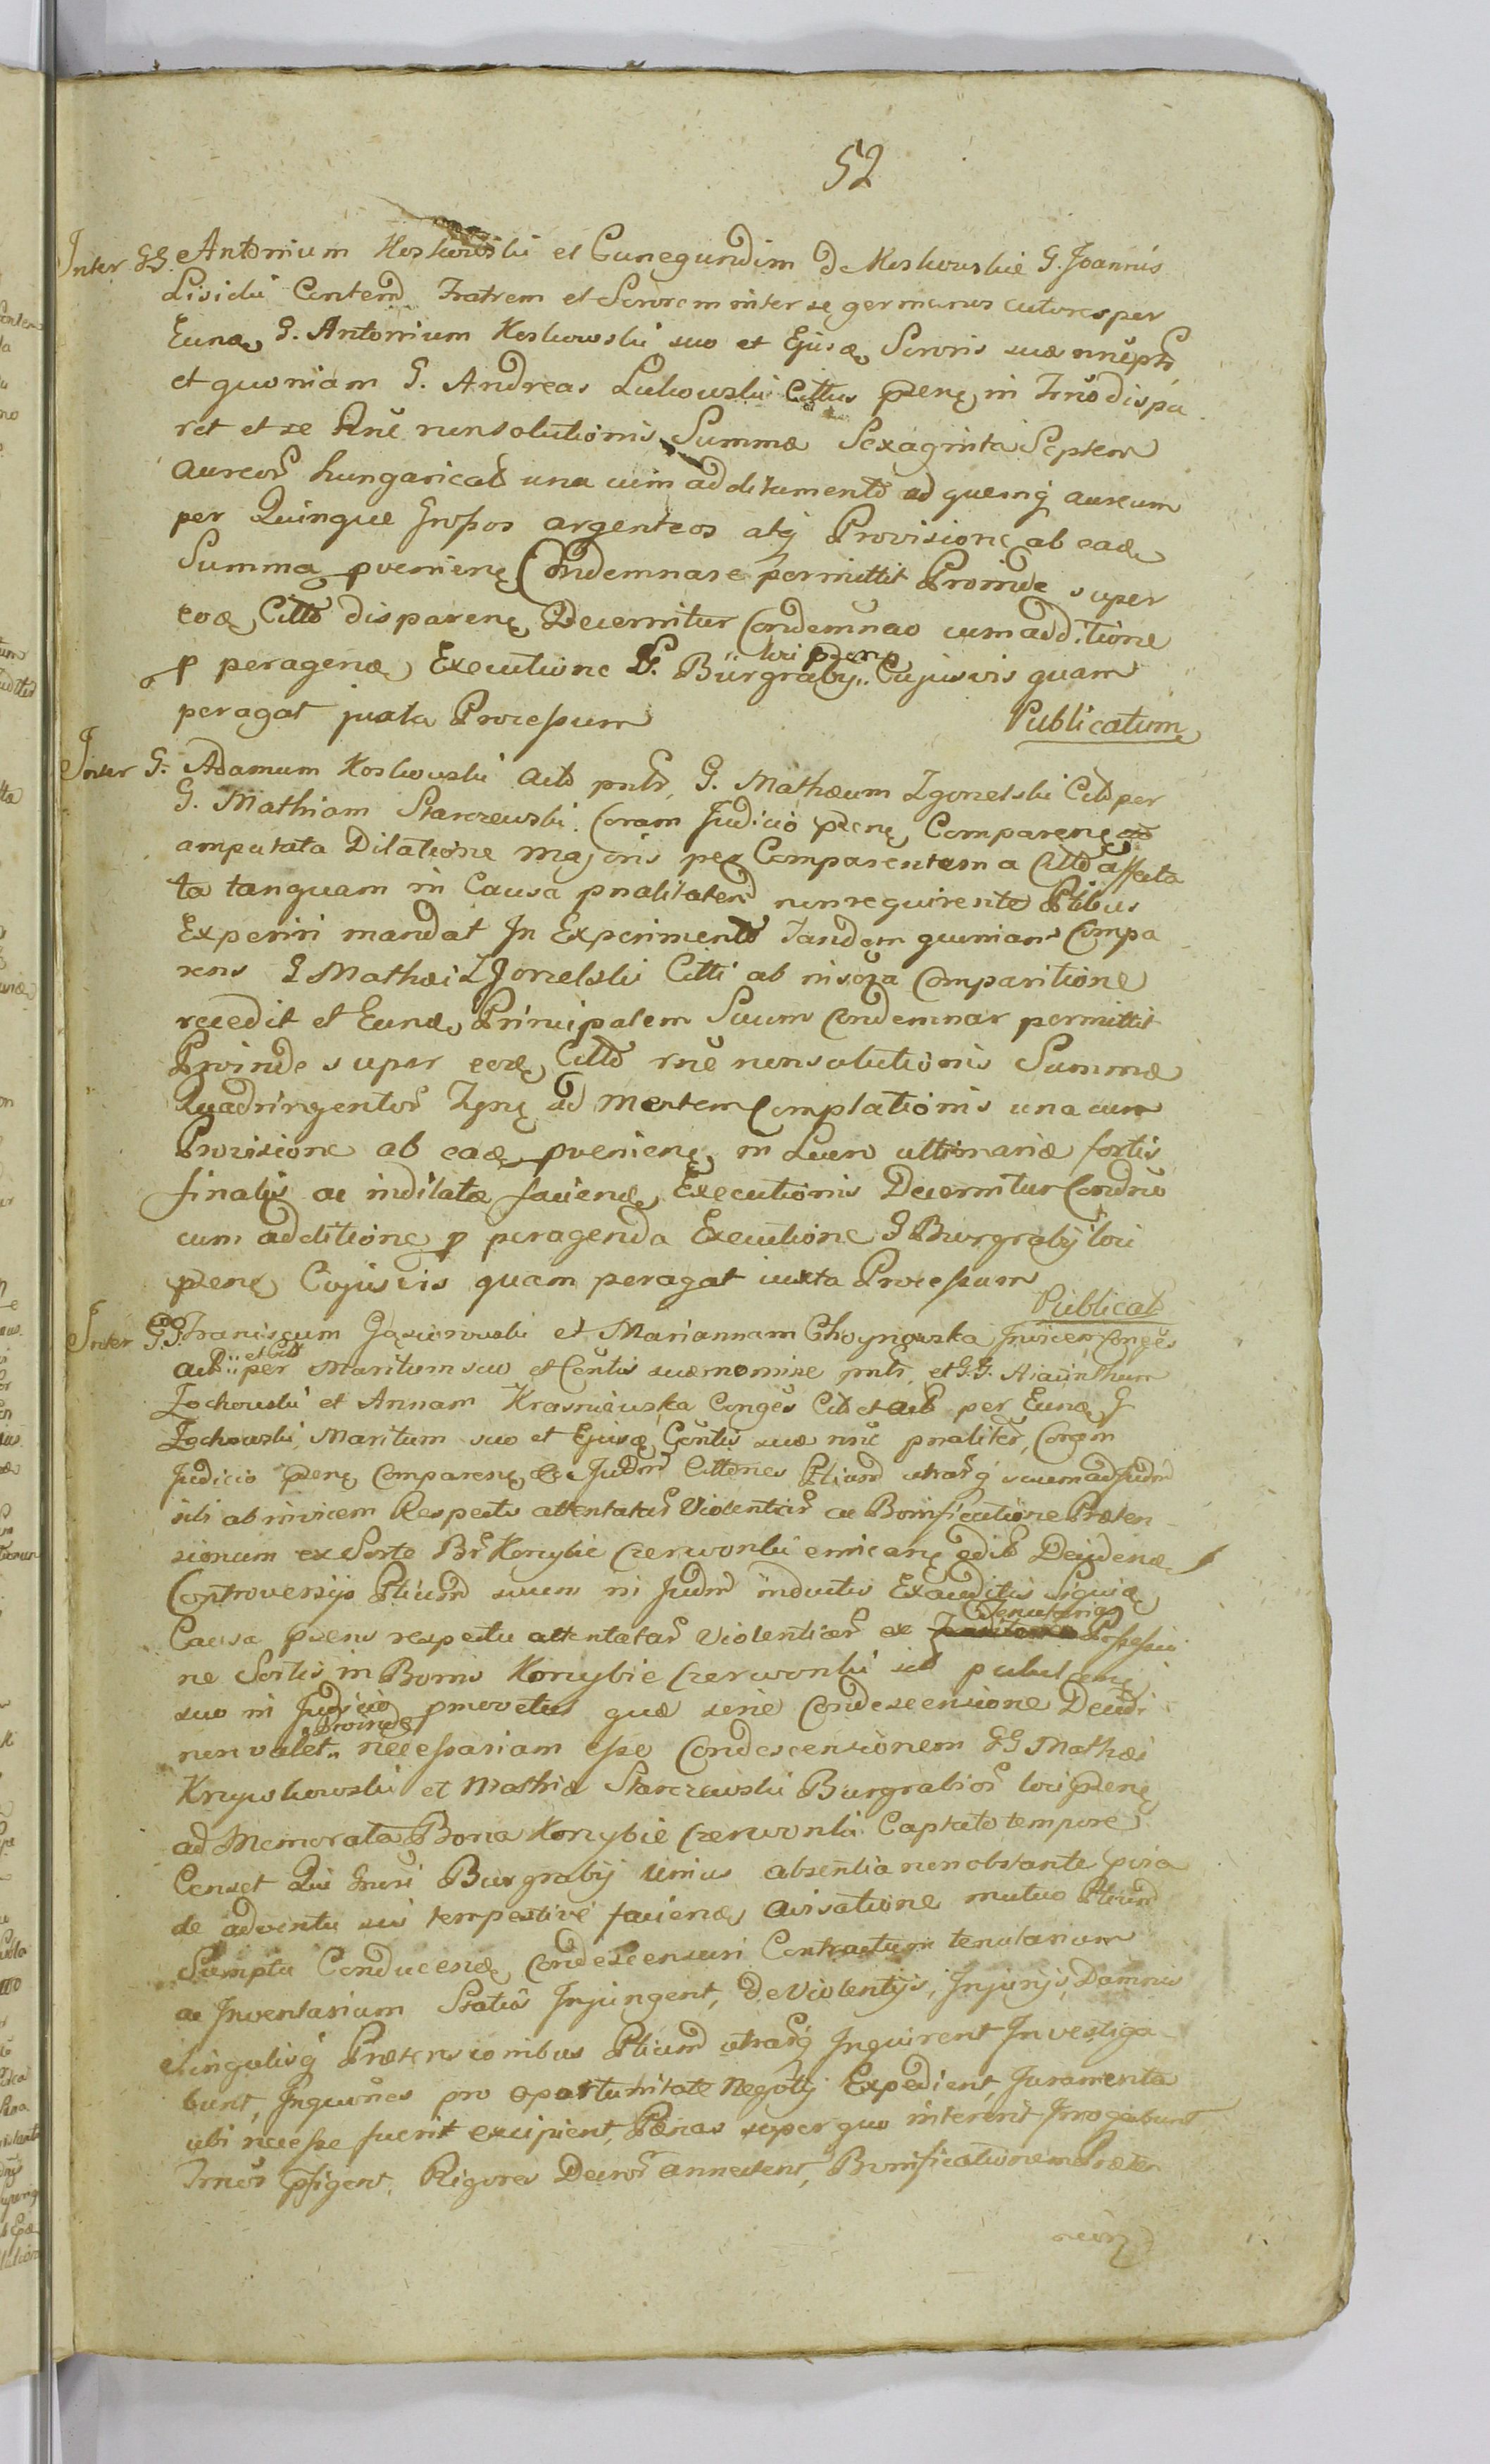 52
Inter GG. Antonium Koskowski et Cunegundim de Koskowskie G. Joannis
Lisicki Contem Fratrem et Sororem inter se germanos actores per
Eundę G. Antonium Koskowski suo et Ejusdę Sororis suæ nnẽ pnt
et quoniam G. Andreas Lukowski Cittus præsenę in Trno dispa
ret et se rnẽ nonsolutionis Summæ Sexaginta Septem
aureor hungarical una cum additamento ad quemq aureum
per Quinque grossos argenteos atq Provisione ab eadę
Summa pvenienę Condemnare permittit Proinde super
eodę Citto disparenę Decernitur Condemnao cum additione
p peragendę Executione G. Burgrabij loci præsenę Cujusvis quam
peragat juxta Processum
Publicatum
Inter G. Adamum Koskowski Act pntr, G. Mathæum Zgonelski Cit per
G. Mathiam Starczewski. Coram Judicio præsenę Comparenę
amputata Dilatione Majoris per Comparentem a Citto affecta
ta tanquam in Causa pnalitatem nonrequirente Ptibus
Experiri mandat In Experimento Tandem quoniam Compa
rens G Mathæi Zgonelski Citti ab insoza Comparitione
recedit et Eundę Principalem Suum Condemnar permittit
Proinde super eodę Citto rnẽ nonsolutionis Summæ
Quadringentor Zgnę ad Mentem Complationis una cum
Provisione ab eadę pvenienę in Luen ultimariæ fortis
finalis ac indilatæ faciendę Executionis Decernitur Condnao
cum additione p peragenda Executione G Burgrabij loci
præsenę Cujusvis quam peragat iuxta Processum
Publicat
Inter GG. Franciscum Gąsiorowski et Mariannam Choynowska Invicem Conges
act et Cit per Maritum suo et Contis suæ nomine pntr, et G.G. Hiacinthum
Zochowski et Annam Krasniewska Conges Cit et act per Eundę G
Zochowski, Maritum suo et Ejusdę Contis suæ nnẽ pnaliter, Coram
Judicio præsenę Comparenę Judm Cittones Ptium utrarq suum ad Judm
sibi abinvicem Respectu attentatar Violentiar ac Bonificatione Præten
sionum ex Sorte Br Konybie Czerwonki emicanę edit Decidendę
Controversijs Ptium suum in Judm inductis Exauditis Siquidę
Causa præsens respectu attentatar Violentiar ex Tenutariæ Possessio
ne Sortis in Bonis Konybie Czerwonki
suo in Judicio pmovetur quæ sine Condescensione Decidi
non valet proinde necessariam esse Condescensionem GG Mathæi
Krzyskowski et Mathiæ Starczewski Burgrabior loci præsenę
ad Memorata Bona Konybie Czerwonki Captato tempore
Censet Qui Gnrsi Burgrabij Unius absentia non obstante pvia
de adventu sui tempestive faciendę avisatione mutuo Ptium
Sumptu Conducendę Condescensuri Contractum tenutarium
ac Inventarium Injungent, De Violentijs, Injurijs, Damnis
Singulisq Prætensionibus Ptium utrarq Inquirent Investiga
bunt, Inquiones pro opportunitate Negotij Expedient, Juramenta
ubi necesse fuerit excipient, Pænas super quo intererit Irrogabunt
Trnos præfigent, Rigores Decror annectent, Bonificationem Præten
sion